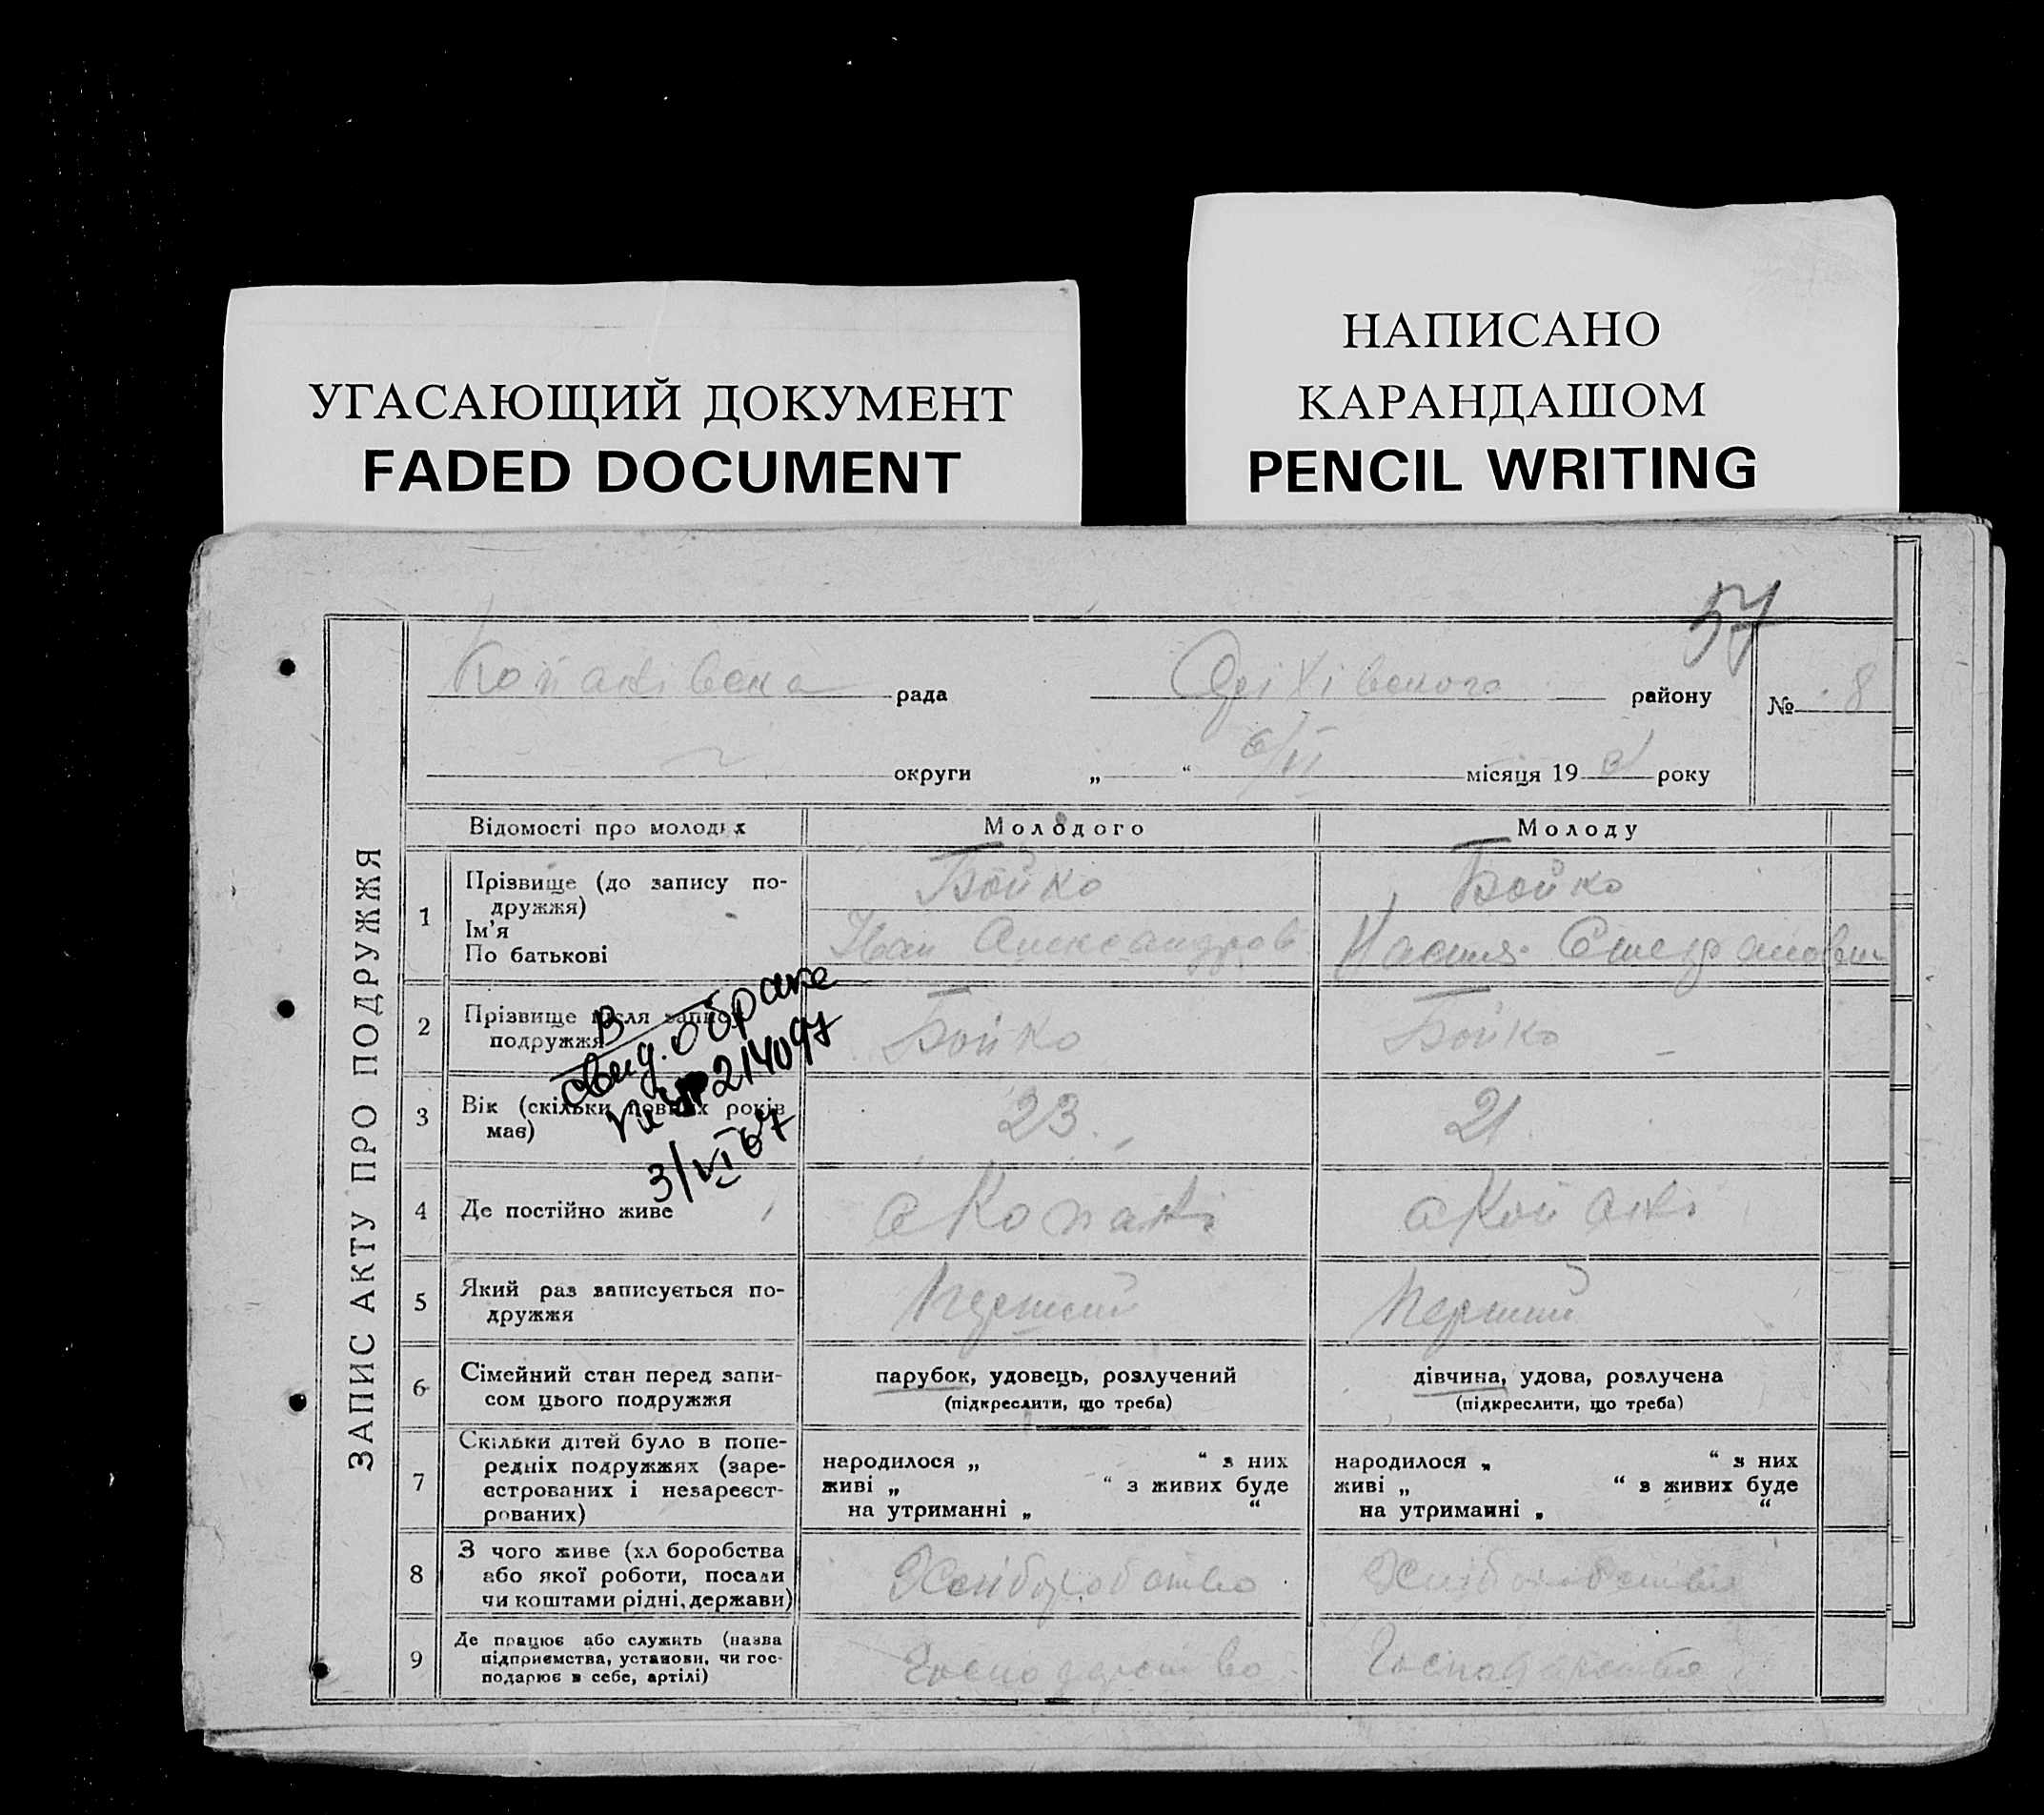 НАПИСАНО
КАРАНДАШОМ
PENCIL WRITING
УГАСАЮЩИЙ ДОКУМЕНТ
FADED DOCUMENT
57
ЗАПИС АКТУ ПРО ПОДРУЖЖЯ
Копанівська рада Оріхівського району № 8
округи „ “ 6/VI місяця 19 року
Відомості про молодих Молодого Молоду
1 Прізвище (до запису по-
дружжя)
Ім'я
По батькові
Бойко Бойко
Іван Александров Настя Стефановн
2 Прізвище після запису
подружжя
Бойко Бойко
В
свид. о браке
214097
3/VI 67
3 Вік (скільки повних років
має)
23 21
4 Де постійно живе с Копані с Копані
5 Який раз записується по-
дружжя
Перший Перший
6 Сімейний стан перед запи-
сом цього подружжя
парубок, удовець, розлучений
(підкреслити, що треба)
дівчина, удова, розлучена
(підкреслити, що треба)
7 Скільки дітей було в попе-
редніх подружжях (заре-
єстрованих і незареєст-
рованих)
народилося „ “ з них
живі „ “ з живих буде
на утриманні „ “
народилося „ “ з них
живі „ “ з живих буде
на утриманні „ “
8 З чого живе (хл боробства
або якої роботи, посади
чи коштами рідні, держави)
Хліборобство Хліборобство
9 Де працює або служить (назва
підприємства, установи, чи гос-
подарює в себе, артілі)
Господарство Господарство